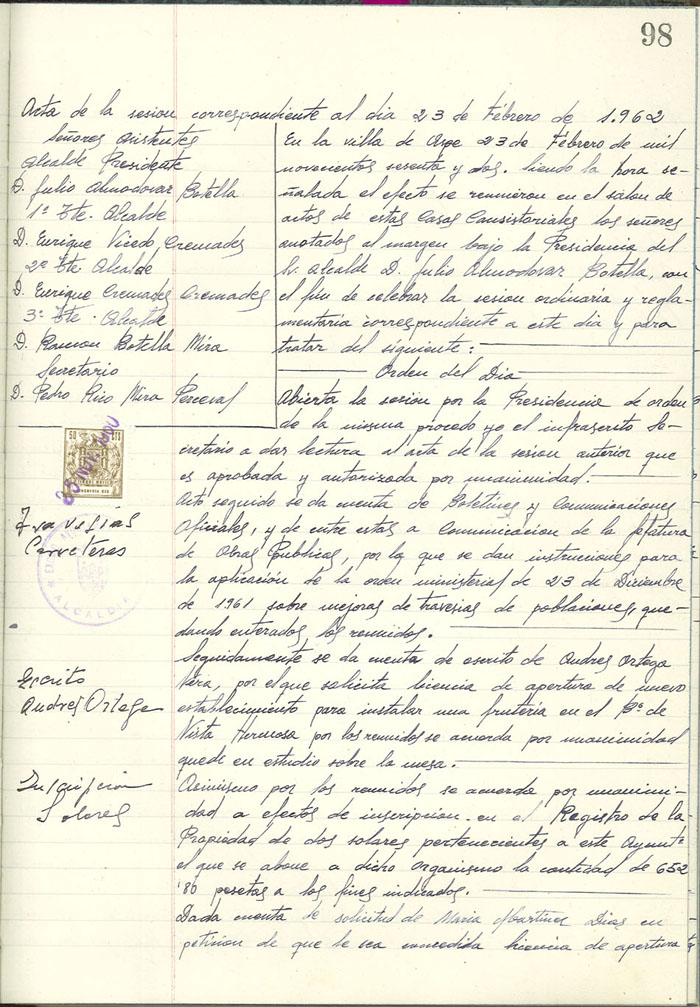 98
Acta de la sesion correspondiente al dia 23 de Febrero de 1.962
Señores Asistentes
Alcalde Presidente
D. Julio Almodovar Botella
1º Tte. Alcalde
D. Enrique Viedo Cremades
2º Tte Alcalde
D. Enrique Cremades Cremades
3º Tte. Alcalde
D. Ramon Botella Mira
Secretario
D. Pedro Rico Mira Perceval
En la villa de Aspe 23 de Febrero de mil
novecientos sesenta y dos. Siendo la hora se-
ñalada el efecto se reunieron en el salon de
actos de estas Casas Consistoriales los señores
anotados al margen bajo la Presidencia del
Sr. Alcalde D. Julio Almodovar Botella, con
el fin de celebrar la sesion ordinaria y regla-
mentaria correspondiente a este dia y para
tratar del siguiente:
Orden del Dia
Abierta la sesion por la Presidencia de orden
de la misma procedo yo el infrascrito Se-
cretario a dar lectura al acta de la sesion anterior que
es aprobada y autorizada por unanimidad.
50 CTS
Travesias
Carreteras
ALCALDIA
Acto seguido se da cuenta de Boletines y Comunicaciones
Oficiales, y de entre estas a Comunicacion de la Jefatura
de Obras Publicas, por la que se dan instrucciones para
la aplicación de la orden ministerial de 23 de Diciembre
de 1961 sobre mejoras de travesias de poblaciones, que-
dando enterados los reunidos.
Escrito
Andres Ortega
Seguidamente se da cuenta de escrito de Andres Ortega
Vera, por el que solicita licencia de apertura de nuevo
establecimiento para instalar una fruteria en el Bº de
Vista Hermosa por los reunidos se acuerda por unanimidad
quede en estudio sobre la mesa.
Inscripcion
Solares
Asimismo por los reunidos se acuerda por unanimi-
dad a efectos de inscripcion en el Registro de la
Propiedad de dos solares pertenecientes a este Ayuntº
el que se abone a dicho organismo la cantidad de 652
'80 pesetas a los fines indicados.
Dada cuenta de solicitud de Maria Martinez Dias en
peticion de que le sea concedida licencia de apertura